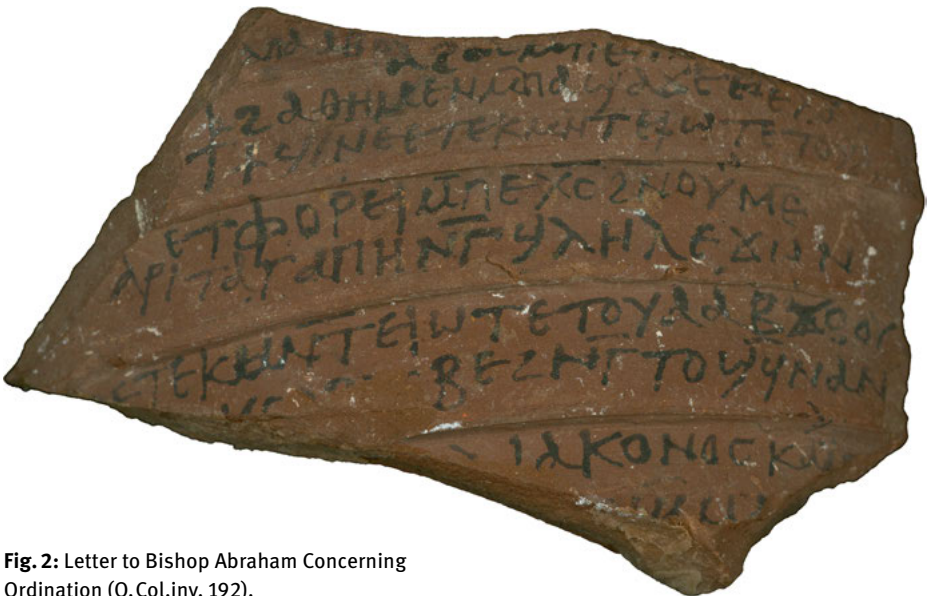 ϩⲁⲑⲏ ⲙⲉⲛ ⲙⲡⲁϣⲁϫⲉ
ϯϣⲓⲛⲉ ⲉⲧⲉⲕⲙⲛⲧⲉⲓⲱⲧ ⲉⲧⲟⲩ
ⲉⲧⲫⲟⲣⲉⲓ ⲙ̄ⲡⲉⲭ̄ⲥ̄ ϩⲛⲟⲩⲙⲉ
ⲁⲣⲓⲧⲁⲅⲁⲡⲏ ⲛ̄ⲅ̄ϣⲗⲏⲗ ⲉϫⲱⲛ
ⲉⲧⲉⲕⲙⲛ̄ⲧⲉⲓⲱⲧ ⲉⲧⲟⲩⲁⲁⲃ
ⲃⲉ ϩⲛⲅ̄ⲧⲟϣϥ ⲛⲁⲛ
ⲓⲁⲕⲟⲛⲟⲥ
Fig. 2: Letter to Bishop Abraham Concerning
Ordination (O.Col.inv. 192).